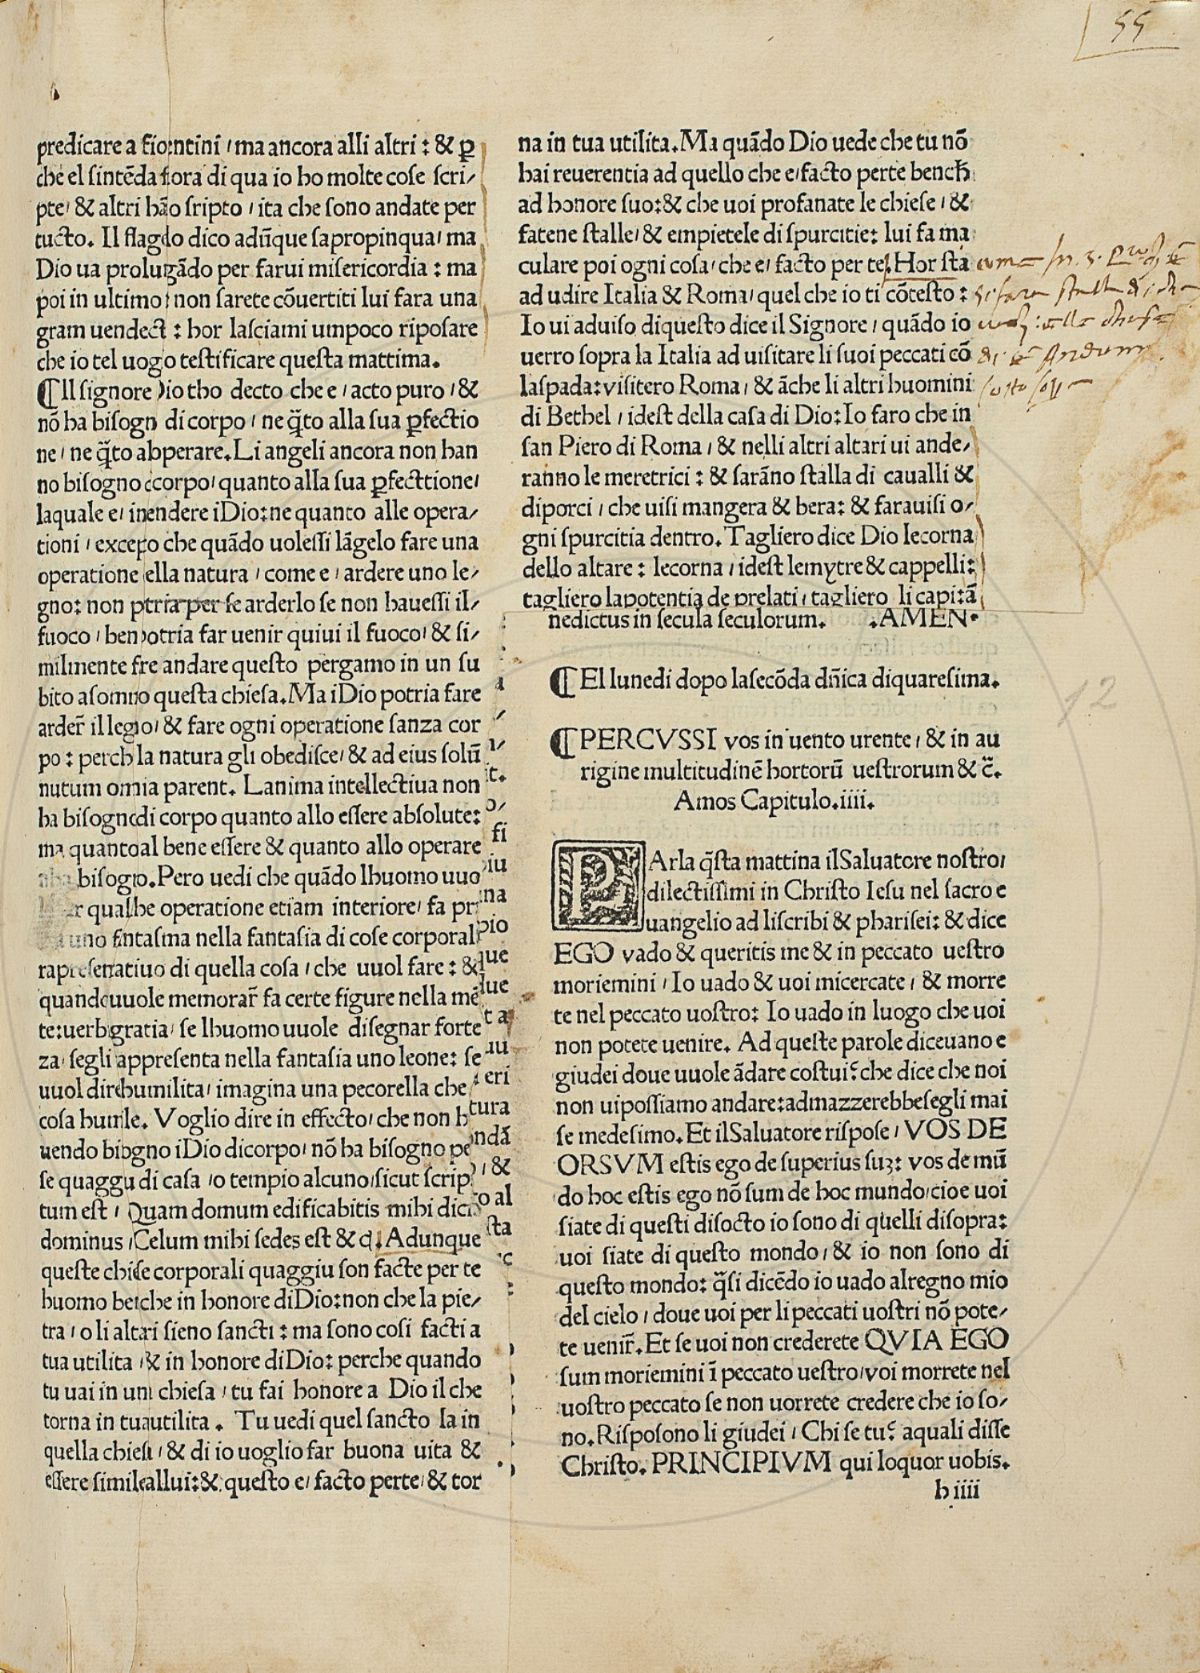 55
predicare a fiorentini / ma ancora alli altri : & ꝑ
che el sintēda fora di qua io ho molte cose scri/
pte / & altri hāo scripto / ita che sono andate per
tucto. Il flagello dico adūque sapropinqua / ma
Dio ua prolungādo per farui misericordia : ma
poi in ultimo / non sarete cōuertiti lui fara una
gram uendect : hor lasciami umpoco riposare
che io tel uogo testificare questa mattina.
¶Il signore Dio tho decto che e / acto puro / &
nō ha bisogno di corpo / ne q̄to alla sua ꝑfectio
ne / ne q̄to ab operare. Li angeli ancora non han
no bisogno corpo / quanto alla sua ꝑfecttione /
laquale e / intendere iDio: ne quanto alle opera/
tioni / excepto che quādo uolessi lāgelo fare una
operatione nella natura / come e / ardere uno le/
gno: non potria per se arderlo se non hauessi il/
fuoco / ben potria far uenir quiui il fuoco / & si/
milmente fare andare questo pergamo in un su
bito a sommo questa chiesa. Ma iDio potria fare
arder̄ il legno / & fare ogni operatione sanza cor
po : perche la natura gli obedisce / & ad eius solū
nutum omnia parent. Lanima intellectiua non
ha bisogno di corpo quanto allo essere absolute:
ma quanto al bene essere & quanto allo operare
bisogno. Pero uedi che quādo lhuomo uuo
far qualche operatione etiam interiore / fa pri
uno fantasma nella fantasia di cose corporali
rapresentatiuo di quella cosa / che uuol fare : &
quando uuole memorar̄ fa certe figure nella mē
te: uerbi gratia / se lhuomo uuole disegnar forte
za / segli appresenta nella fantasia uno leone: se
uuol dire humilita / imagina una pecorella che
cosa humile. Voglio dire in effecto / che non h
uendo bisogno iDio di corpo / nō ha bisogno pe
se quaggu di casa / o tempio alcuno / sicut scrip
tum est / Quam domum edificabitis mihi dicit
dominus / Celum mihi sedes est & c̄. Adunque
queste chiese corporali quaggiu son facte per te
huomo benche in honore di Dio: non che la pie/
tra / o li altari sieno sancti : ma sono cosi facti a
tua utilita / & in honore di Dio: perche quando
tu uai in una chiesa / tu fai honore a Dio il che
torna in tua utilita . Tu uedi quel sancto la in
quella chiesa / & di io uoglio far buona uita &
essere simile allui: & questo e / facto per te / & tor
na in tua utilita. Ma quādo Dio uede che tu nō
hai reuerentia ad quello che e / facto per te bench̄
ad honore suo: & che uoi profanate le chiese / &
fatene stalle / & empietele di spurcitie: lui fa ma
culare poi ogni cosa / che e / facto per te. Hor sta
ad udire Italia & Roma / quel che io ti cōtesto :
Io ui aduiso di questo dice il Signore / quādo io
uerro sopra la Italia ad uisitare li suoi peccati cō
la spada: visitero Roma / & āche li altri huomini
di Bethel / idest della casa di Dio: Io faro che in
san Piero di Roma / & nelli altri altari ui ande/
ranno le meretrici : & sarāno stalla di caualli &
di porci / che uisi mangera & bera: & farauisi o/
gni spurcitia dentro. Tagliero dice Dio le corna
dello altare : le corna / idest le mytre & cappelli:
tagliero la potentia de prelati / tagliero li capitā
nedictus in secula seculorum. .AMEN.
¶El lunedi dopo la secōda dn̄ica di quaresima.
12
¶PERCVSSI vos in uento urente / & in au
rigine multitudinē hortorū uestrorum & c̄.
Amos Capitulo .iiii.
PArla q̄sta mattina il Saluatore nostro /
dilectissimi in Christo Iesu nel sacro e
uangelio ad li scribi & pharisei: & dice
EGO vado & queritis me & in peccato uestro
moriemini / Io uado & uoi mi cercate / & morre
te nel peccato uostro: Io uado in luogo che uoi
non potete uenire. Ad queste parole diceuano e
giudei doue uuole ādare costui? che dice che noi
non ui possiamo andare: admazzerebbesegli mai
se medesimo. Et il Saluatore rispose / VOS DE
ORSVM estis ego de superius suꝫ: vos de mū
do hoc estis ego nō sum de hoc mundo / cioe uoi
siate di questi disocto io sono di quelli disopra:
uoi siate di questo mondo / & io non sono di
questo mondo: q̄si dicēdo io uado al regno mio
del cielo / doue uoi per li peccati uostri nō pote/
te uenir̄. Et se uoi non crederete QVIA EGO
sum moriemini ī peccato uestro / voi morrete nel
uostro peccato se non uorrete credere che io so/
no. Risposono li giudei / Chi se tu? a quali disse
Christo. PRINCIPIVM qui loquor uobis.
h iiii